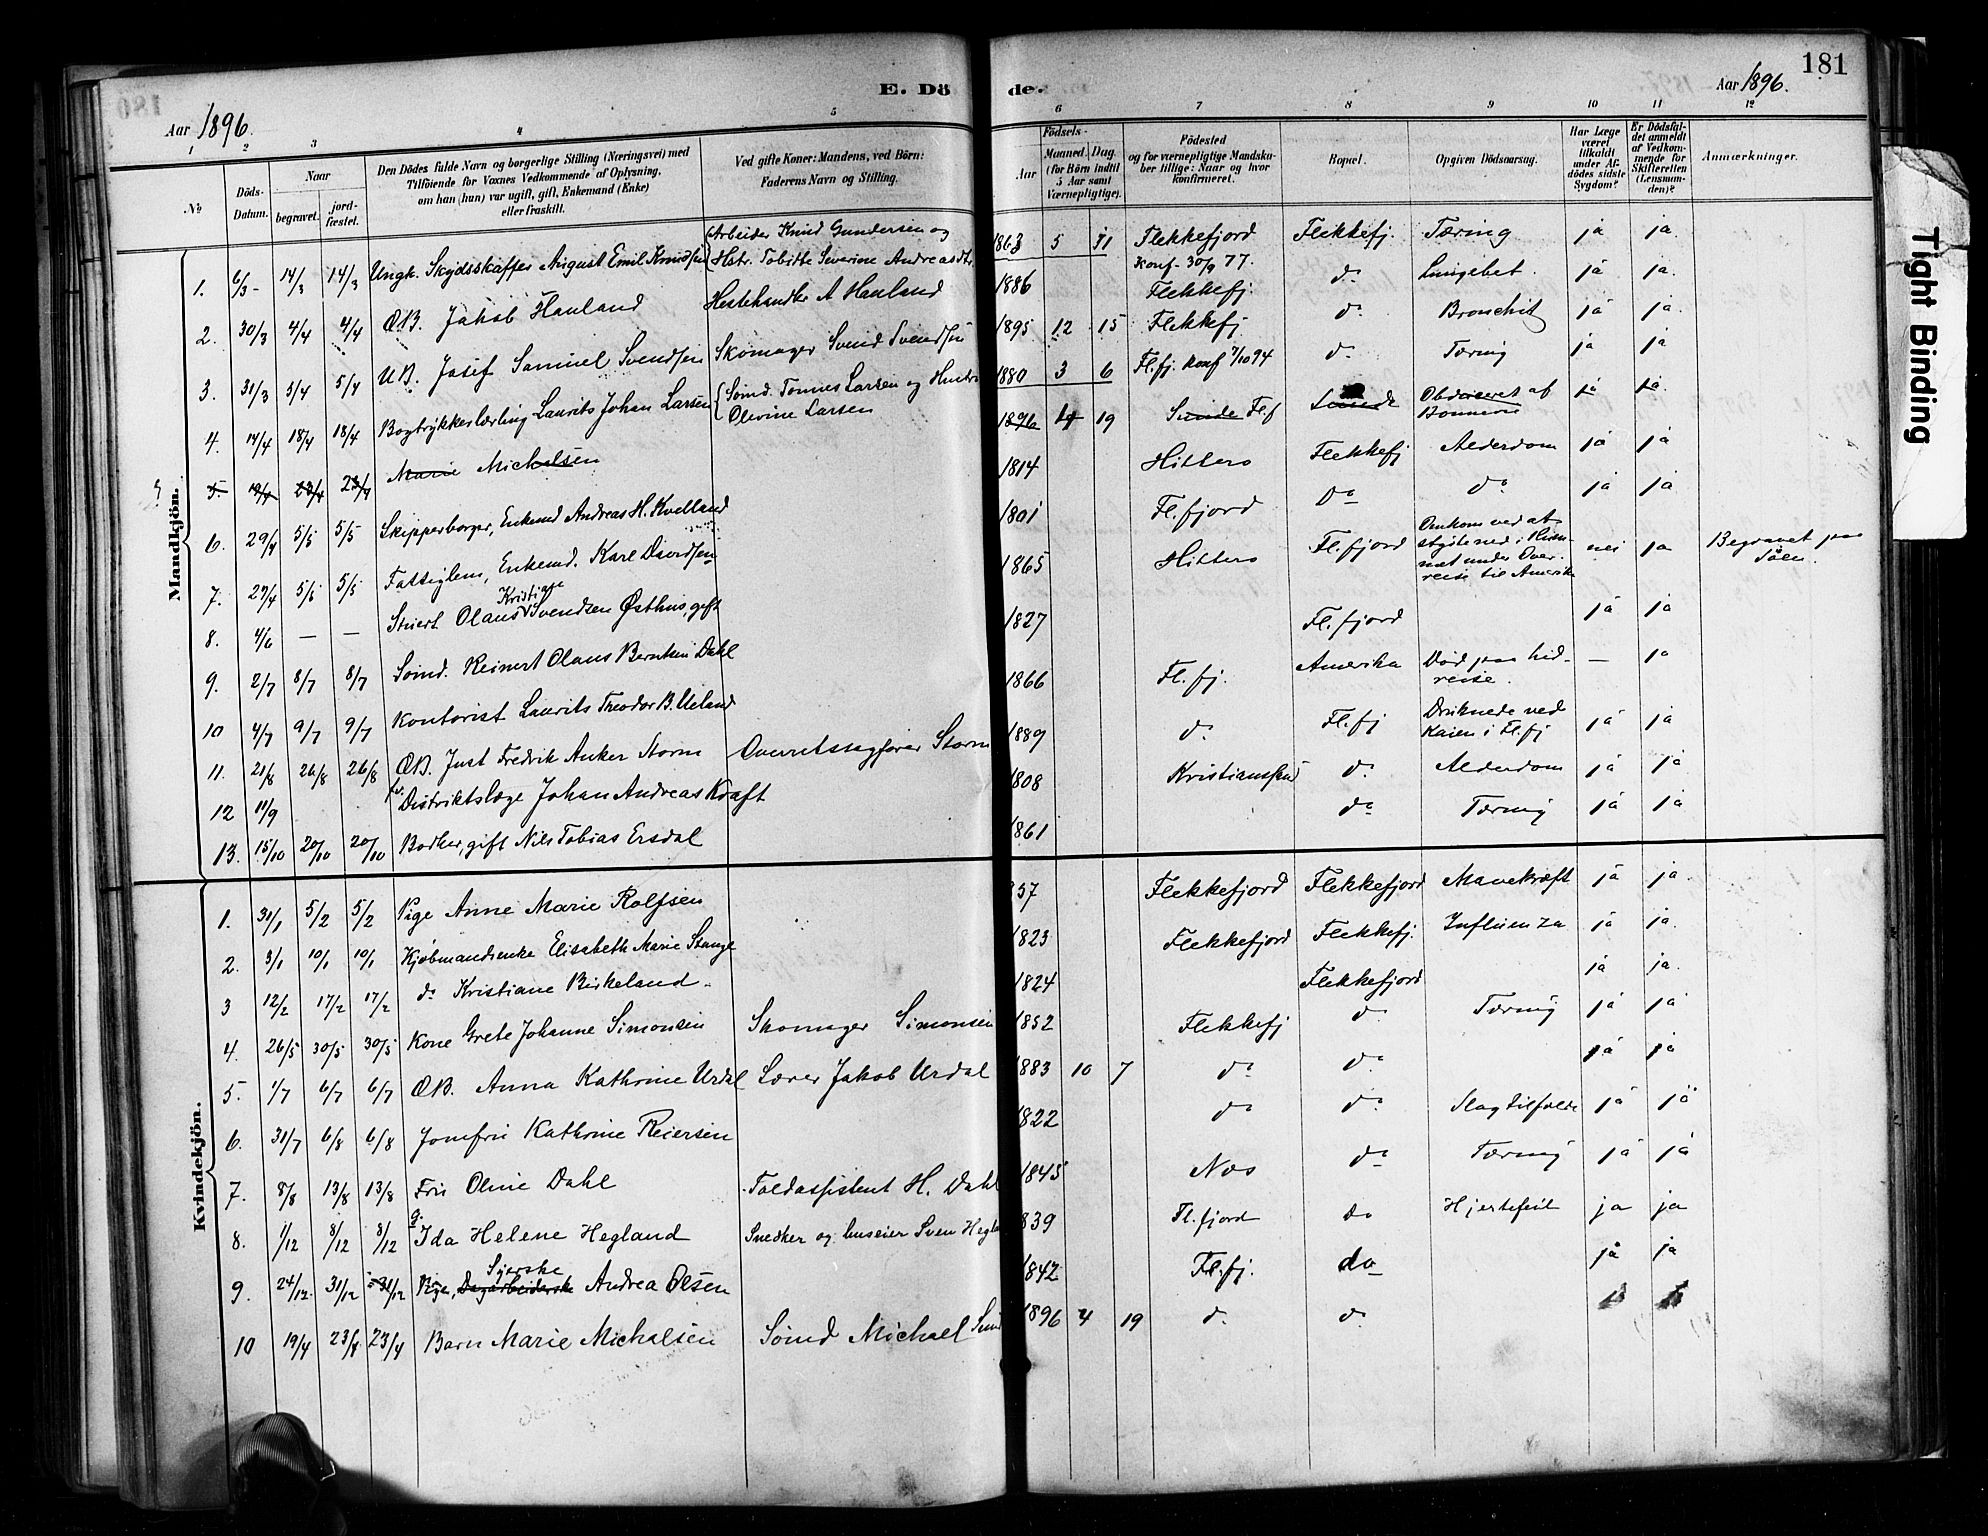 181
E. Döde.
Aar 1896.
Aar 1896.
1 2 3 4 5 6 7 8 9 10 11 12
№
Döds-Datum.
Naar begravet. jord-fæstet.
Den Dödes fulde Navn og borgerlige Stilling (Næringsvei) med Tilföiende for Voxnes Vedkommende af Oplysning, om han (hun) var ugift, gift, Enkemand (Enke) eller fraskilt.
Ved gifte Koner: Mandens, ved Börn: Faderens Navn og Stilling.
Födsels-
Aar Maaned. Dag. (for Börn indtil 5 Aar samt Værnepligtige).
Födested og for værnepligtige Mandskaber tillige: Naar og hvor konfirmeret.
Bopæl.
Opgiven Dödsaarsag.
Har Læge været tilkaldt under Afdödes sidste Sygdom?
Er Dödsfaldet anmeldt af Vedkommende for Skifteretten (Lensmanden)?
Anmærkninger.
Mandkjön.
1. 6/3 14/3 14/3 Ungk. Skydsskaffer August Emil Knudsen {Arbeider Knud Gundersen og Hstr. Tobidte Severine Andreasdtr. 1863 5 31 Flekkefjord Konf. 30/9 77. Flekkefj. Tæring ja ja.
2. 30/3 4/4 4/4 ÆB. Jakob Hauland Hestehandler A Hauland 1886 Flekkefj. do Lungebet. ja ja.
3. 31/3 5/4 5/4 UB. Josef Samuel Svendsen Skomager Svend Svendsen 1895 12 15 Flekkefj do Bronchit ja ja.
4. 14/4 18/4 18/4 Bogtrykkerlærling Laurits Johan Larsen {Sømd. Tønnes Larsen og Hustru Olevine Larsen 1880 3 6 Fl.fj. Konf 7/10 94 do Tæring ja ja
5. 19/4 23/4 23/4 Marie Michalsen 1896 4 19 Sunde Fl.f Sunde af ja ja.
6. 29/4 5/5 5/5 Skipperborger, Enkemd Andreas H. Kvelland 1814 Hitterø Flekkefj Alderdom ja ja
7. 29/4 5/5 5/5 Fattiglem, Enkemd. Karl Davidsen 1801 Fl.fjord Do do ja ja
8. 4/6 — — Stuert Olaus Kristian Svendsen Østhus, gift 1865 Hitterø Fl.fjord Omkom ved at styrte ned i under Overreise til Amerika nei ja Begravet paa Søen.
9. 2/7 8/7 8/7 Sømd. Reinert Olaus Berntsen Dahl 1827 Fl.fjord ja ja
10 4/7 9/7 9/7 Kontorist Laurits Theodor B. Ueland 1866 Fl.fj. Amerika Død paa hidreise. — ja
11. 21/8 26/8 26/8 ÆB. Just Fredrik Anker Storm Overretssagfører Storm 1889 do Fl.fj Druknede ved Kaien i Fl.fj ja ja
12 11/9 fv. Distriktslæge Johan Andreas Kraft 1808 Kristianssand do Alderdom ja ja
13. 15/10 20/10 20/10 Bødker, gift Nils Tobias Ersdal 1861 do Tæring ja ja
Kvindekjön.
1. 31/1 5/2 5/2 Pige Anne Marie Rolfsen 37 Flekkefjord Flekkefjord Mavekræft ja ja.
2. 3/1 10/1 10/1 Kjøbmandsenke Elisabeth Marie Stange 1823 Flekkefjord Flekkefj. Influenza ja ja.
3 12/2 17/2 17/2 do Kristiane Birkeland. 1824 Flekkefjord ja ja.
4. 26/5 30/5 30/5 Kone Grete Johanne Simonsen Skomager Simonsen 1852 Flekkefj do Tæring ja ja
5. 1/7 6/7 6/7 ÆB. Anna Kathrine Urdal Lærer Jakob Urdal 1883 10 7 do do ja ja
6. 31/7 6/8 6/8 Jomfru Kathrine Reiersen 1822 do do Slagtilfælde ja ja
7. 8/8 13/8 13/8 Fru Oline Dahl Toldassistent H. Dahl 1845 Næs do Tæring ja ja
8. 1/12 8/12 8/12 g. Ida Helene Hegland Snedker og huseier Sven Hegla 839 Fl.fjord do Hjertefeil ja ja
9. 24/12. 31/12 31/12 Pige, Dagarbeiderske Syerske Andrea Olsen 1842 Fl.fj. do ja ja
10 19/4 23/4 23/4 Barn Marie Michalsen Sømd Michael Sun 1896 4 19 do do
Tight Binding